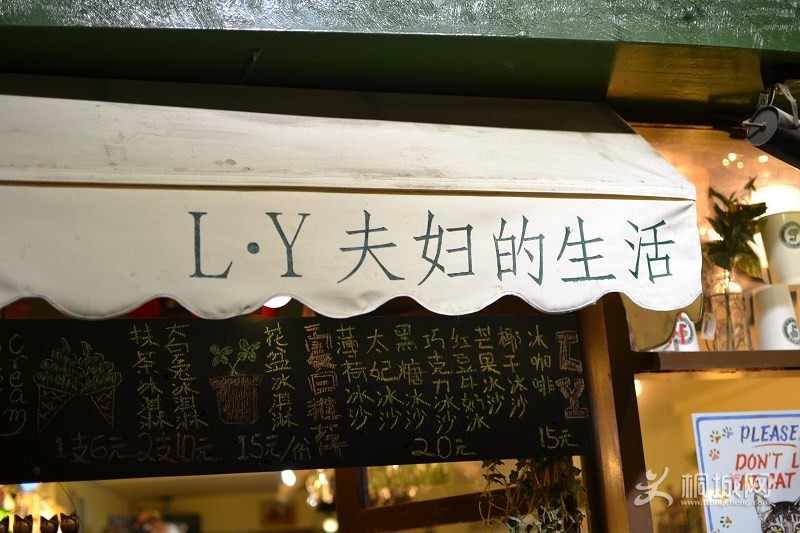 L·Y夫妇的生活
LY
夏日推荐
冰咖啡
椰子冰沙
芒果冰沙
红豆牛奶冰
巧克力冰沙
黑糖冰沙
太妃冰沙
薄荷冰沙
15元
20元
花盆冰淇淋
15元/份
抹茶冰淇淋
1支6元 2支10元
cream
PLEASE
DON'T L
CAT
桐城网